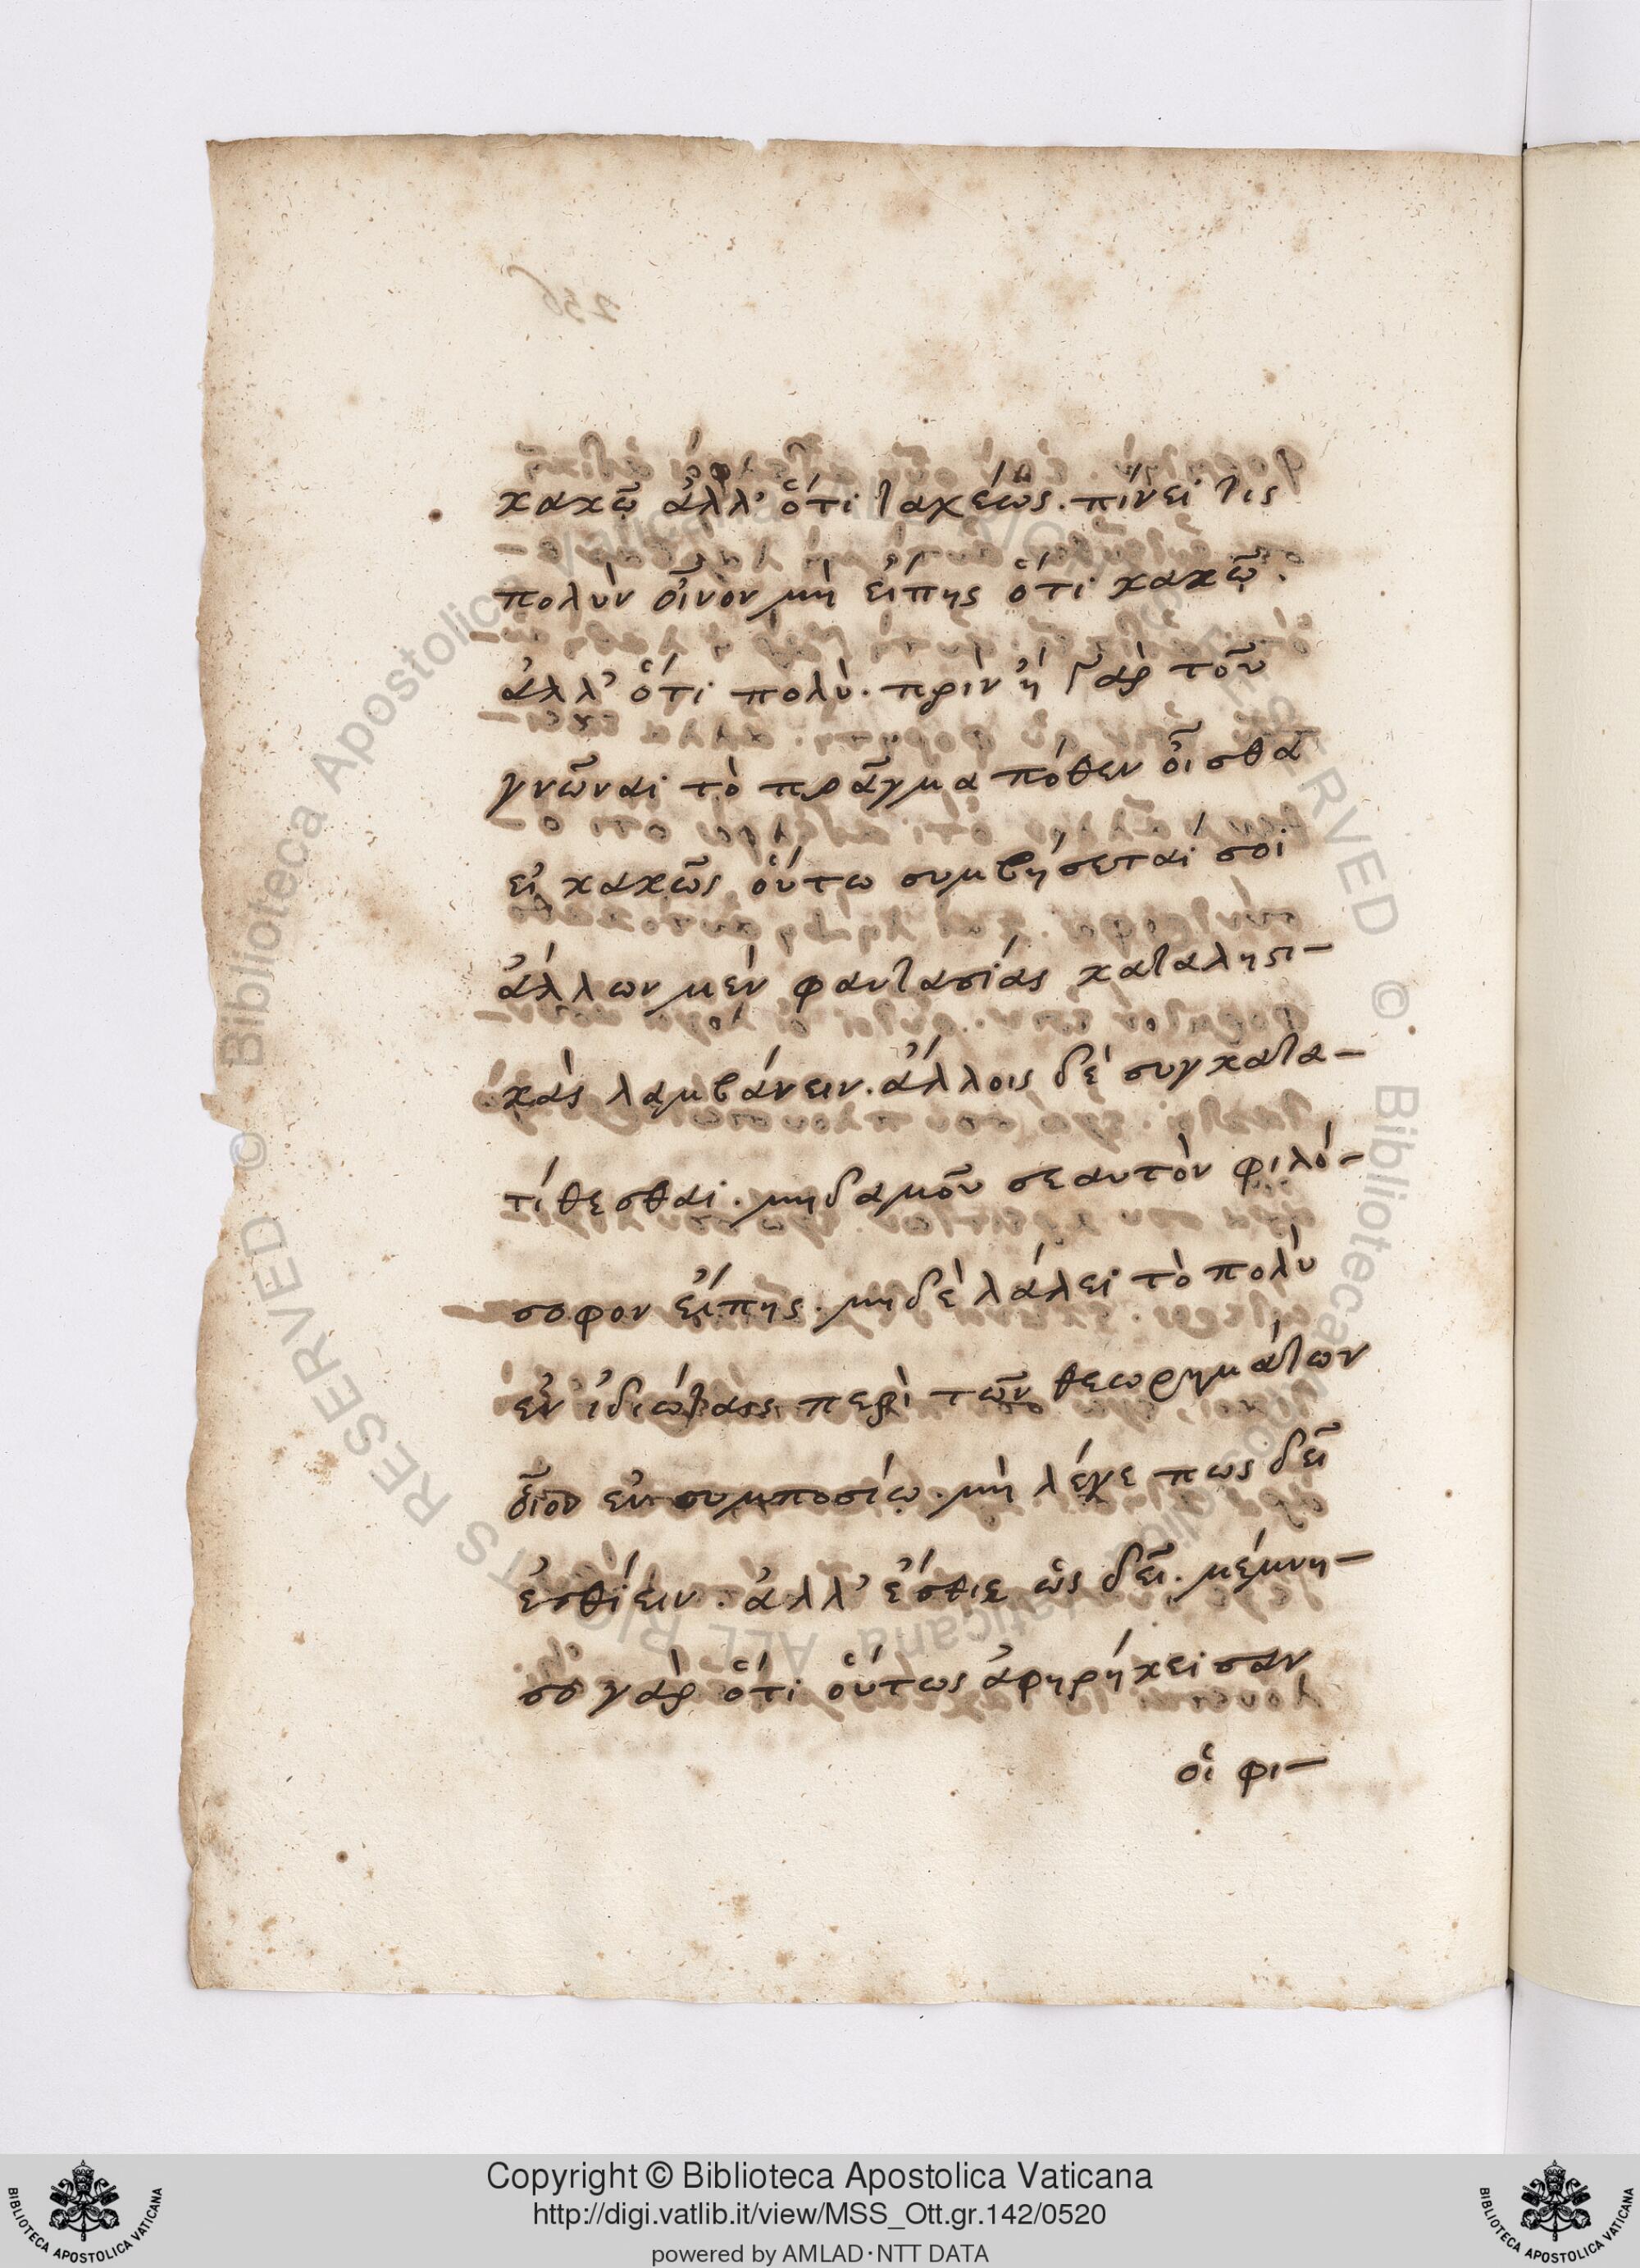 κακῶς ἀλλ' ὅτι ταχέως. πίνει τὶς
πολὺν οἶνον μὴ εἴπῃς ὅτι κακῶς.
ἀλλ' ὅτι πολὺ. πρὶν ἢ γὰρ τοῦ
γνῶναι τὸ πρᾶγμα πόθεν οἶσθα
εἰ κακῶς οὕτω συμβήσεταί σοι
ἄλλων μὲν φαντασίας καταληπτι-
κὰς λαμβάνειν. ἄλλοις δὲ συγκατα-
τίθεσθαι. μηδαμοῦ σεαυτὸν φιλό-
σοφον εἴπῃς. μηδὲ λάλει τὸ πολὺ
ἐν ἰδιώταις περὶ τῶν θεωρημάτων
οἷον ἐν συμποσίῳ. μὴ λέγε πως δεῖ
ἐσθίειν. ἀλλ' ἔσθιε ὡς δεῖ. μέμνη-
σο γὰρ ὅτι οὕτως ἀφηρήκει σαν
οἱ φι-
236
Copyright © Biblioteca Apostolica Vaticana
http://digi.vatlib.it/view/MSS_Ott.gr.142/0520
powered by AMLAD·NTT DATA
BIBLIOTECA APOSTOLICA VATICANA
BIBLIOTECA APOSTOLICA VATICANA